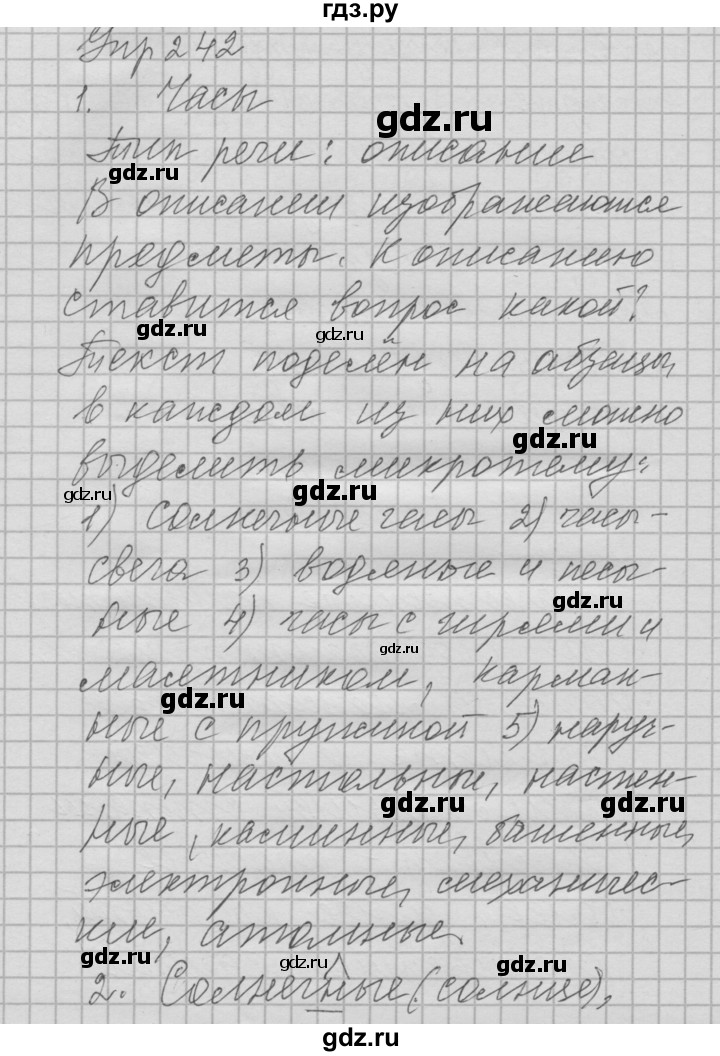 гдз.ру
Упр 242
1. Часы
gdz.ru
Тип речи: описание
gdz.ru
В описании изображаются
предметы. К описанию
gdz.ru
ставится вопрос какой?
gdz.ru gdz.ru
Текст поделён на абзацы,
в каждом из них можно
gdz.ru
выделить микротему:
gdz.ru gdz.ru
1) солнечные часы 2) часы-
свеча 3) водяные и песо-
gdz.ru
чные 4) часы с гирями и
gdz.ru
маятником, карман-
gdz.ru
ные с пружиной 5) наруч-
gdz.ru
ные, настольные, настен-
gdz.ru gdz.ru
ные, каминные, башенные,
электронные, механичес-
gdz.ru
кие, атомные.
gdz.ru gdz.ru gdz.ru
2. Солнечные (солнце),
gdz.ru